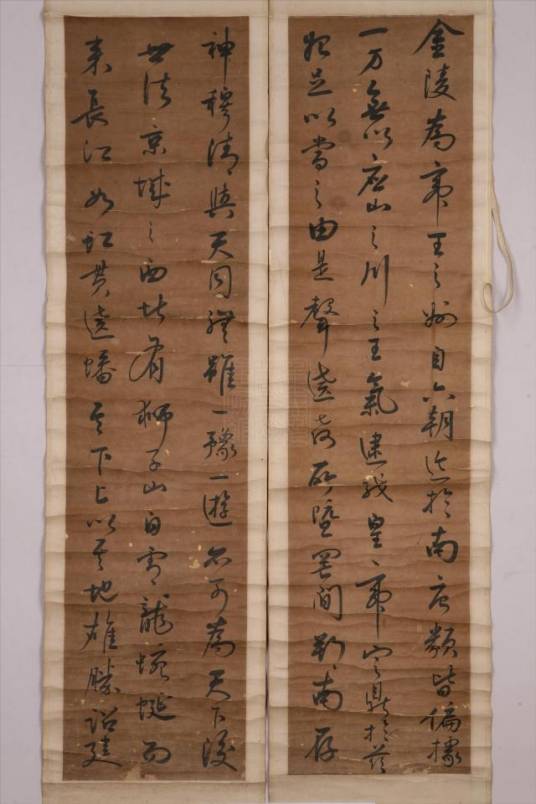 金陵為帝王之州自六朝迄於南唐類皆偏據
一方無以應山之川之王氣逮我皇帝定鼎於茲
始足以當之由是聲遠教所墍罔間朔南存
神穆清與天同體雖一豫一遊亦可為天下後
世法京城之西北有獅子山自盧龍蜿蜒而
來長江如虹貫遶蟠其下上以其地雄勝詔建